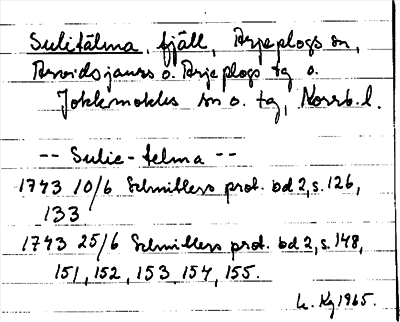 Sulitälma, fjäll, Arjeplogs sn,
Arvidsjaurs o. Arjeplogs tg o.
Jokkmokks sn o. tg, Norrb. l.
-- Sulie-telma --
1743 10/6 Schnitlers prot. bd 2, s. 126,
133
1743 25/6 Schnitlers prot. bd 2, s. 148,
151, 152, 153, 154, 155.
Kg 1965.